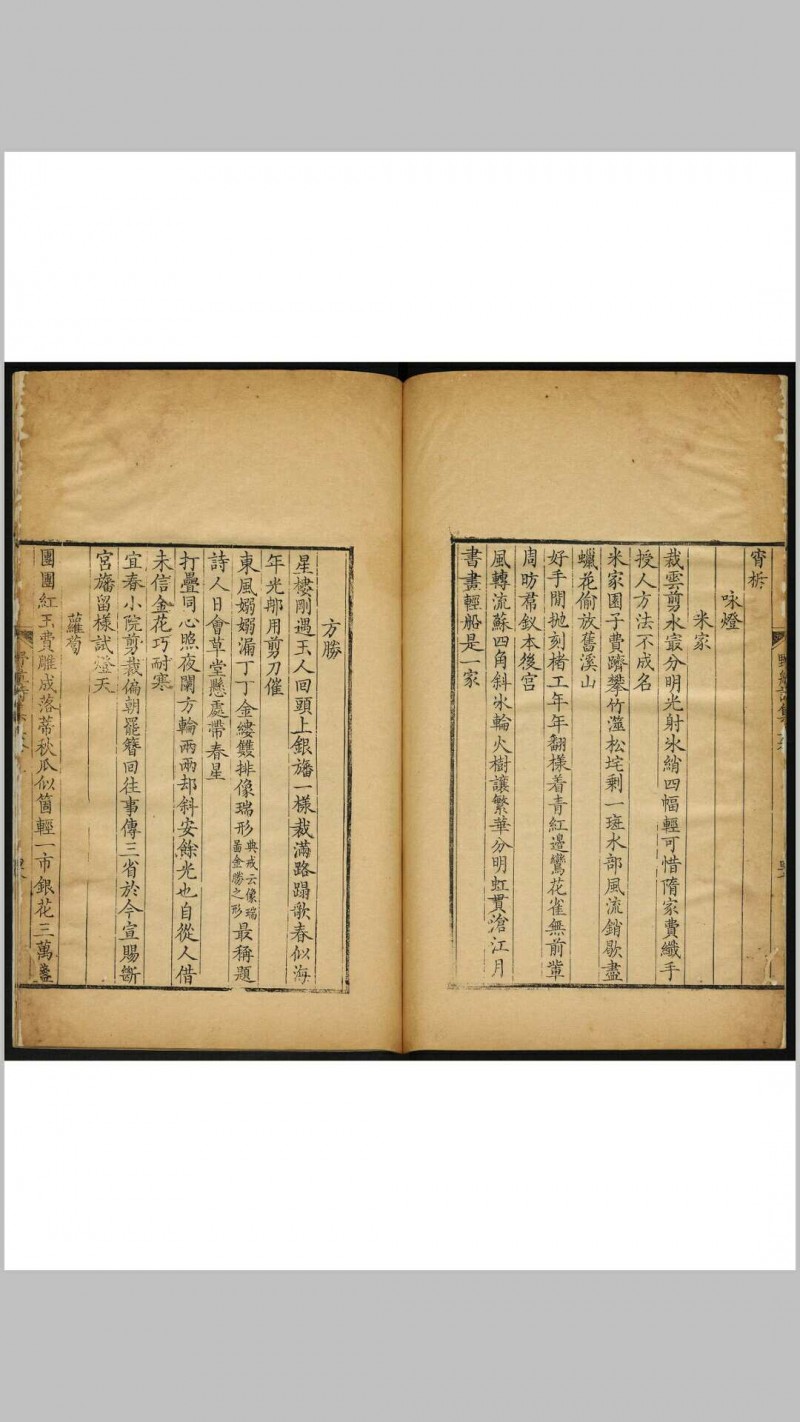 宵柝
咏燈
米家
裁雲剪水最分明光射氷綃四幅輕可惜隋家費纖手
授人方法不成名
米家園子費躋攀竹滋松垞剩一斑水部風流銷歇盡
蠟花偷放舊溪山
好手閒拋刻楮工年年翻樣着青紅邊鸞花雀無前軰
周昉羣釵本後宮
風轉流蘇四角斜氷輪火樹讓繁華分明虹貫滄江月
書畫輕船是一家
方勝
星樓剛遇玉人回頭上銀旛一樣裁滿路蹋歌春似海
年光都用剪刀催
東風嫋嫋漏丁丁金縷雙排像瑞形典戒云像瑞啚金勝之形最稱題
詩人日會草堂懸處帶春星
打疊同心照夜闌方輪兩兩却斜安餘光也自從人借
未信金花巧耐寒
宜春小院剪裁偏朝罷簪回往事傳三省於今宣賜斷
宮旛留樣試燈天
蘿蔔
團團紅玉費雕成落蒂秋瓜似箇輕一市銀花三萬盞